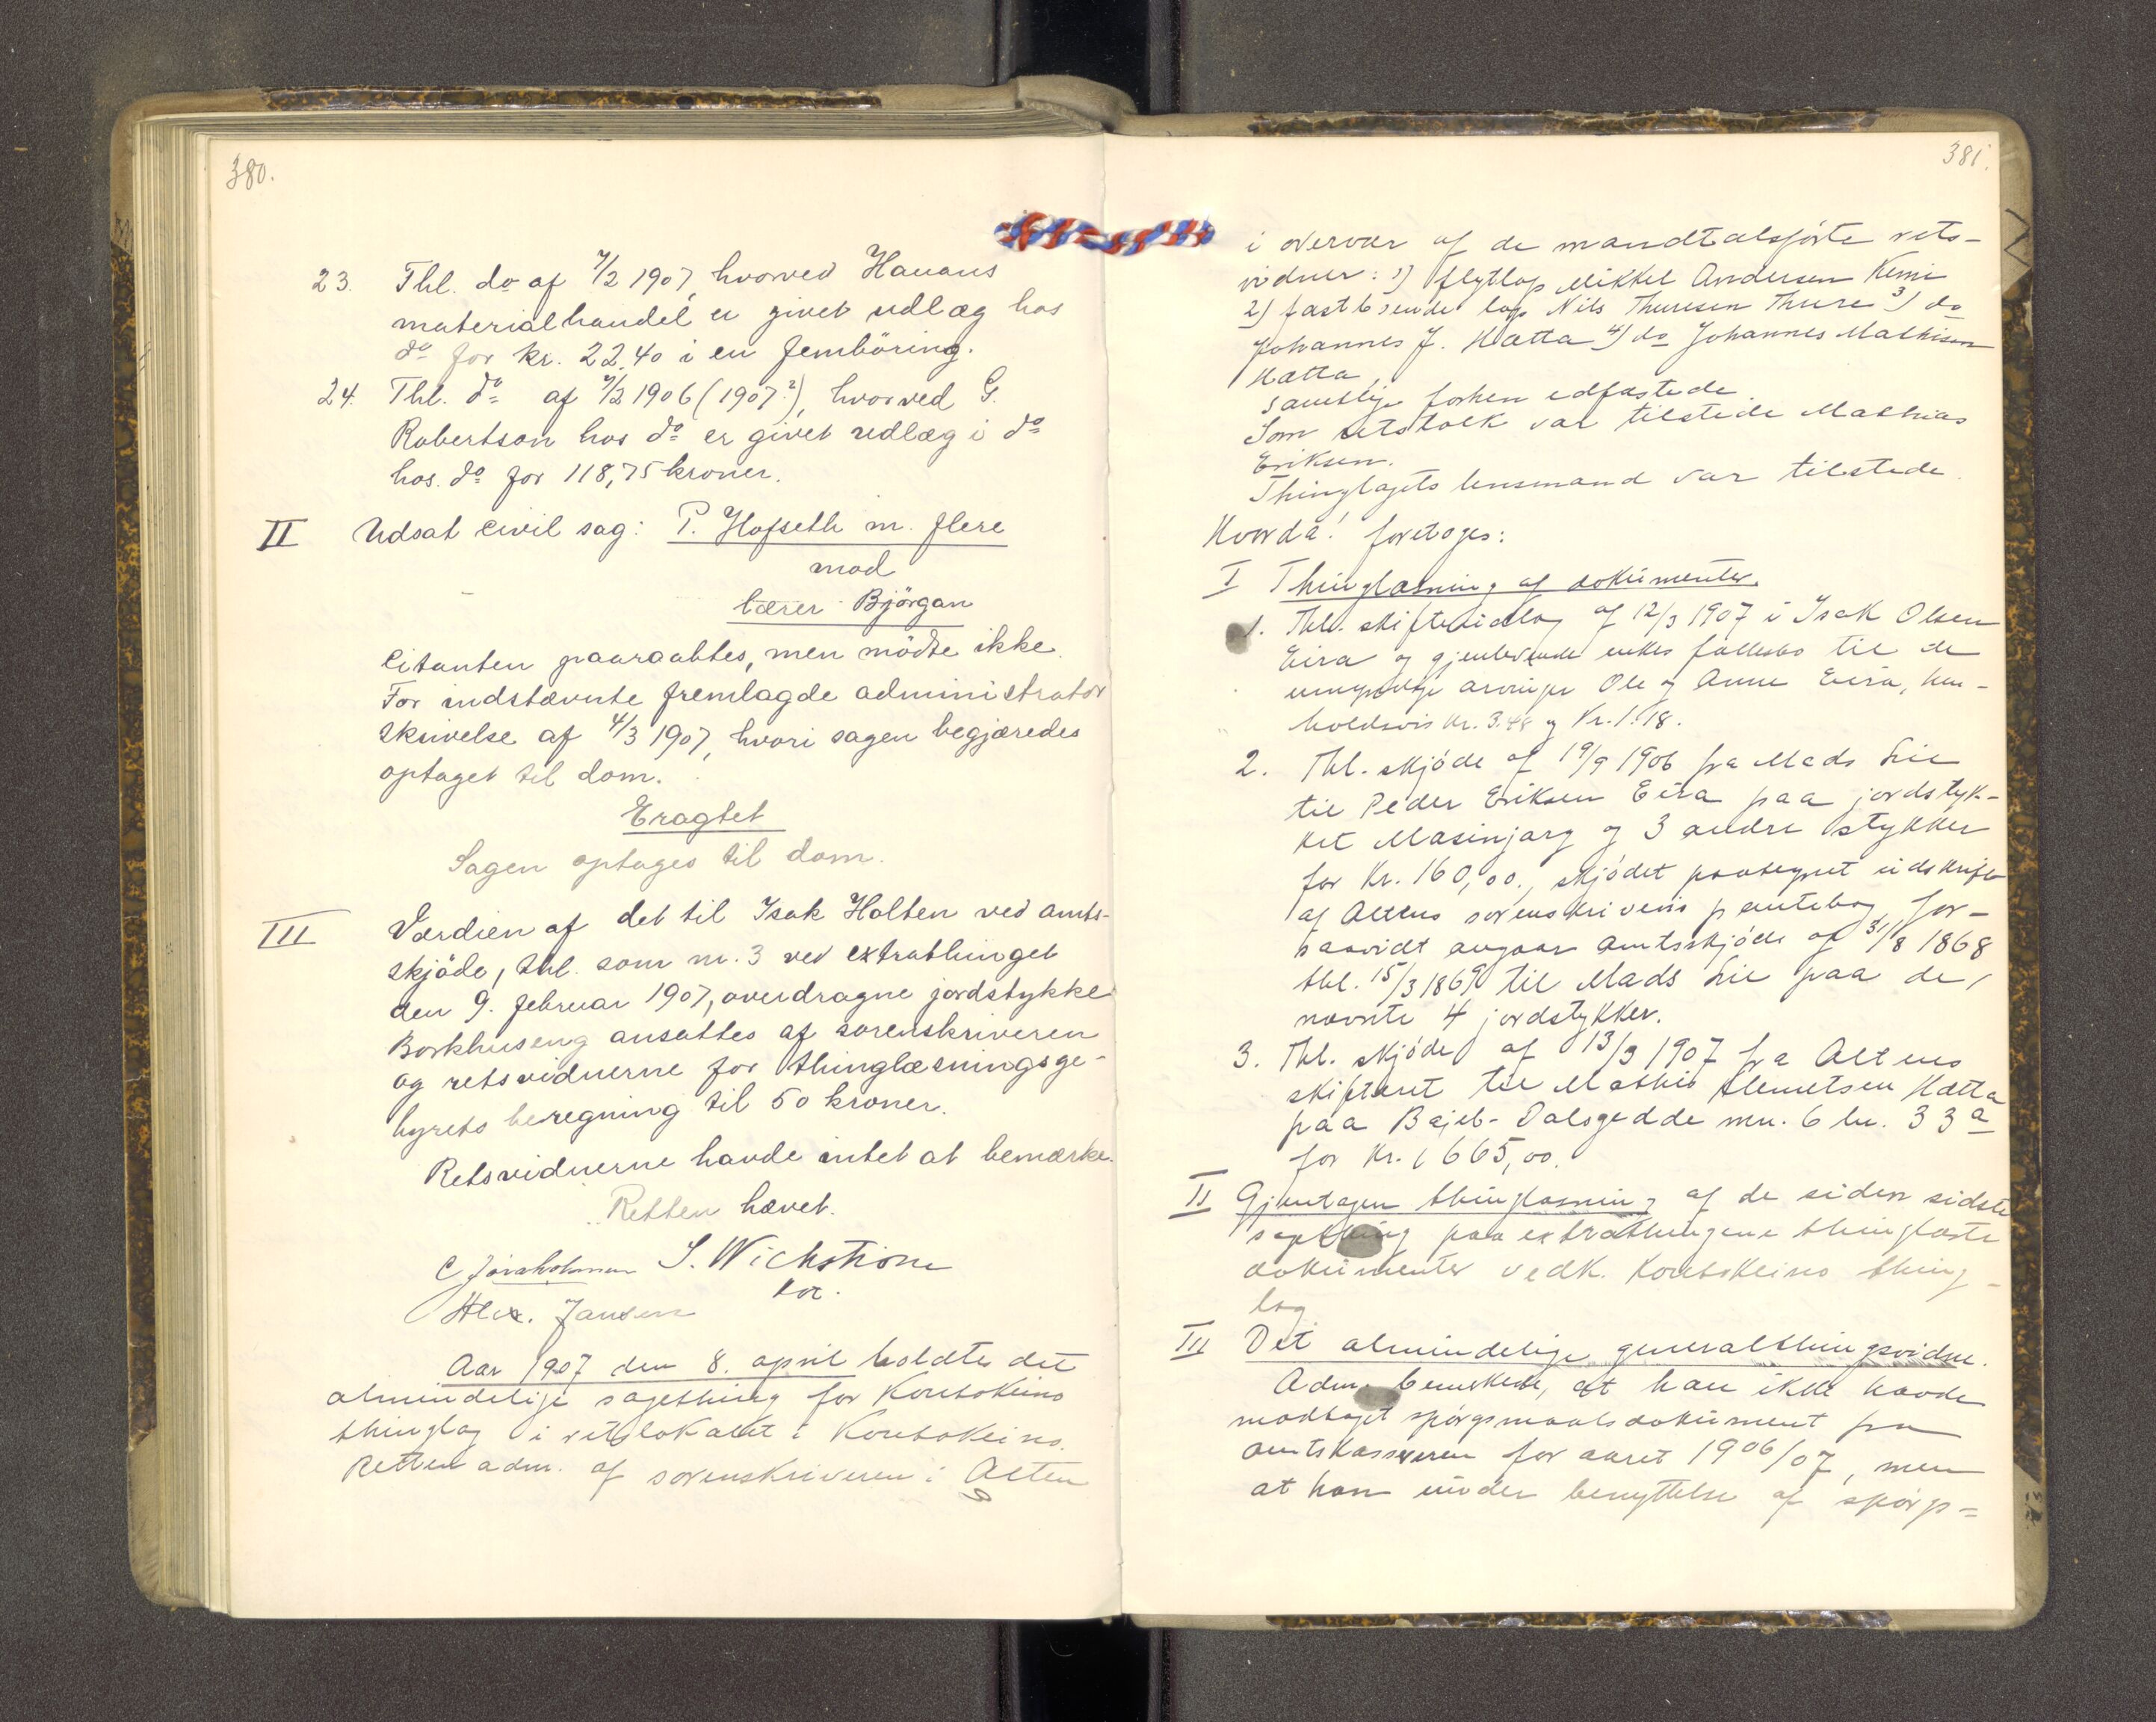 380.
23. Thl. do af 7/2 1907, hvorved Hauans
materialhandel er givet udlæg hos
do for kr. 22.40 i en femböring.
24. Thl. do af 7/2 1906 (1907?), hvorved G.
Robertson hos do er givet udlæg i do
hos. do for 118,75 kroner.
II Udsat civil sag: P. Hofseth m. flere
mod
lærer Björgan
Citanten paaraabtes, men mödte ikke.
For indstævnte fremlagde administrator
skrivelse af 4/3 1907, hvori sagen begjæredes
optaget til dom.
Eragtet
Sagen optages til dom.
III Værdien af det til Isak Holten ved amts-
skjöde, thl. som nr. 3 ved extrathinget
den 9. februar 1907, overdragne jordstykke
Borkhuseng ansattes af sorenskriveren
og retsvidnerne for thinglæsningsge-
byrets beregning til 50 kroner.
Retsvidnerne havde intet at bemærke.
Retten hævet.
S. Wichström
kst.
Alex. Jansen
Aar 1907 den 8. april holdtes det
almindelige sagething for Koutokeino
thinglag i retslokalet i Koutokeino.
Retten adm. af sorenskriveren i Alten
381.
i overvær af de mandtalsförte rets-
vidner: 1) flytlap Mikkel Andersen Kemi
2) fastboende lap Nils Thuresen Thure 3) do
Johannes J. Hætta 4) do Johannes Mathisen
Hætta,
samtlige forhen edfæstede.
Som retstolk var tilstede Mathias
Eriksen.
Thinglagets lensmand var tilstede.
Hvorda! foretoges:
I Thinglæsning af dokumenter.
1. Thl. skifteudlæg af 12/3 1907 i Isak Olsen
Eira og gjenlevende enkes fællesbo til de
umyndige arvinger Ole og Anne Eira, hen-
holdsvis kr. 3.48 og kr. 1.18.
2. Thl. skjöde af 19/9 1906 fra Mads Lie
til Peder Eriksen Eira paa jordstyk-
ket Masinjarg og 3 andre stykker
for kr. 160,00., skjödet paategnet udskrift
af Altens sorenskriveris pantebog for-
saavidt angaar amtsskjöde af 31/8 1868
thl. 15/3 1869 til Mads Lie paa de
nævnte 4 jordstykker.
3. Thl. skjöde af 13/3 1907 fra Altens
skifteret til Mathis Klemetsen Hætta
paa Bajeb-Dalsgedde mn. 6 ln. 33a
for kr. 1665,00.
II Gjentagen thinglæsning af de siden sidste
sagething paa extrathingene thinglæste
dokumenter vedk. Koutokeino thing-
lag
III Det almindelige generalthingsvidne.
Adm. bemerkede, at han ikke havde
modtaget spörgsmaalsdokument fra
amtskassereren for aaret 1906/07, men
at han under benyttelse af spörgs-